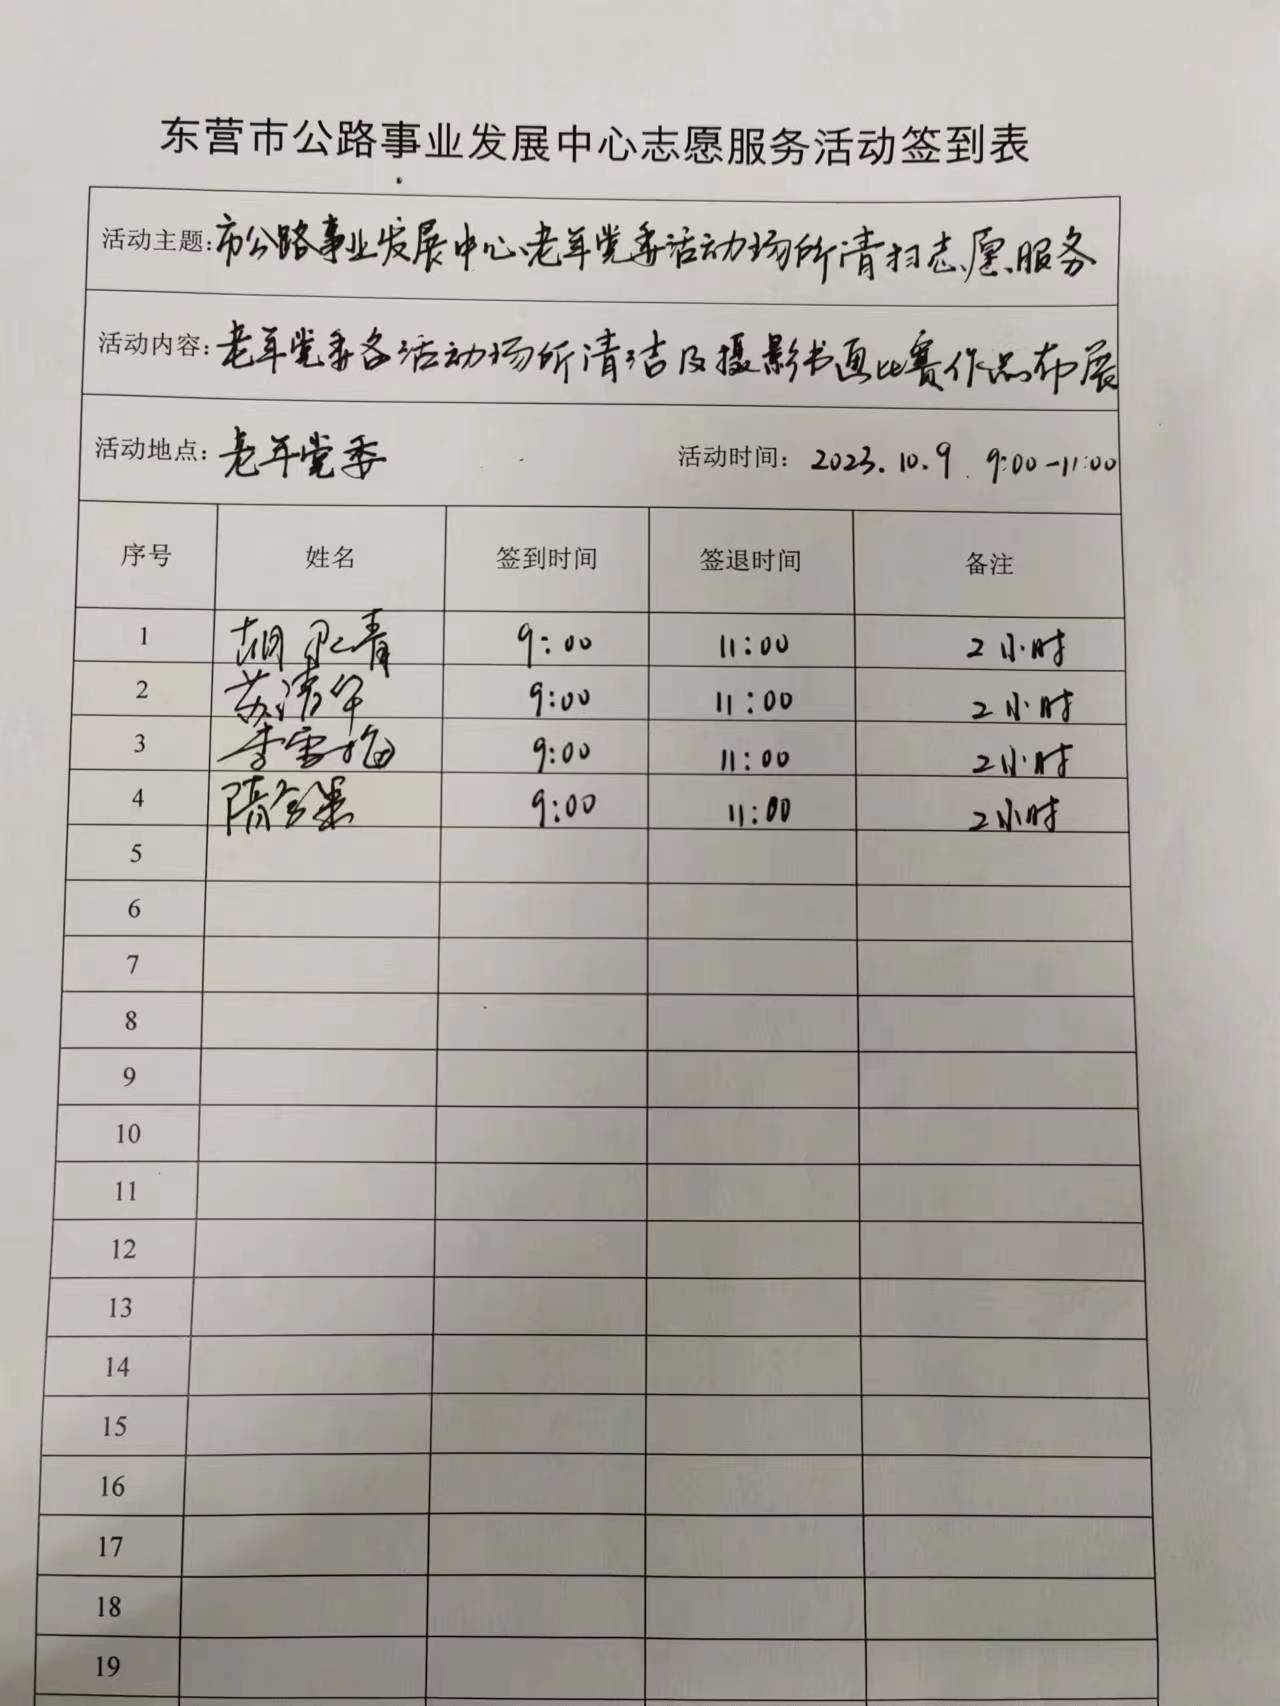 东营市公路事业发展中心志愿服务活动签到表
活动主题：市公路事业发展中心老年党委活动场所清扫志愿服务
活动内容：老年党委各活动场所清洁及摄影书画比赛作品布展
活动地点：老年党委 活动时间：2023.10.9 9:00-11:00
序号 姓名 签到时间 签退时间 备注
1 胡 青 9:00 11:00 2小时
2 苏清 9:00 11:00 2小时
3 李雪梅 9:00 11:00 2小时
4 隋 9:00 11:00 2小时
5
6
7
8
9
10
11
12
13
14
15
16
17
18
19